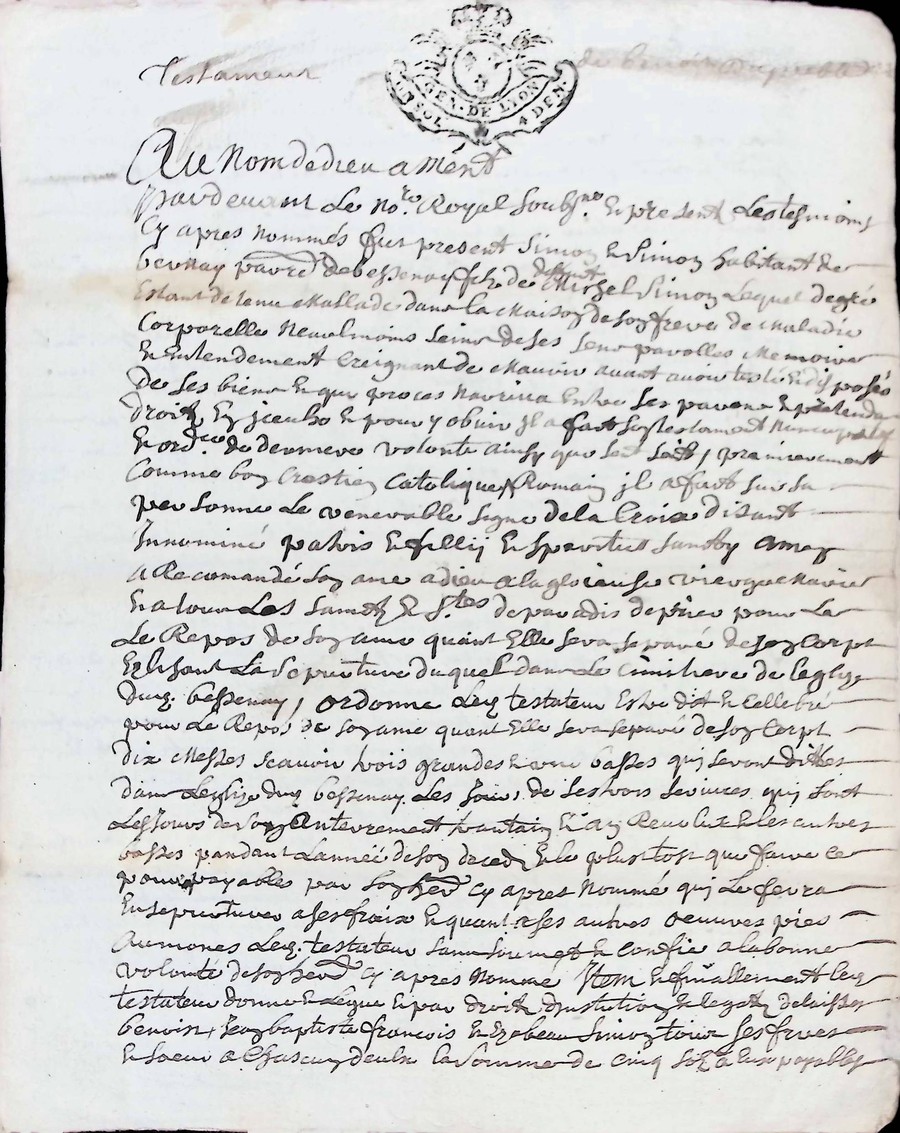 Testament
GEN. DE LYON
UN SOL 4 DEN.
Au nom de dieu amént
pardevant Le nore Royal soubsné En presence Les tesmoins
Cy apres nommés fut present Simon Simon habitant de
bernay parred de bessenay fils de deffunt Michel Simon Lequel de gré
Estant detenu Mallade dans La Maison de son frere de Maladie
Corporelle neaulmoins seine de ses sens parolles Memoire
Et Entendement Creignant de Mourir avant avoir testé Et disposés
de ses biens Et que proces narriva Entre ses parens Et pretendu
droits En Iceulx Et pour y obvier Jl a fait son testament nuncupatif
Et ordce de derniere volonté ainsy que sen suit, premierement
Comme bon Crestien Catolique Romain jl a fait sur sa
personne Le venerable signe de la Croix disant
Innominé patris Et fillij Et sperituts santby amen
a Recomandé son ame a dieu a la glorieuse vierge Marie
Et a tous Les saints Et Stes de paradis de prier pour Le
Le Repos de son ame quant Elle sera separé de son Corpt
Eslisant La sepeulture duquel dans Le Cimithere de leglize
dudt. bessenay, ordonne Led testateur Estre dit Et Cellebré
pour Le Repos de son ame quant Elle sera separé de son Corpt
dix Messes scavoir trois grandes Et sept basses quj seront dittes
dans Leglize dud bessenay Les jours de ses trois services quj sont
Les jours de son Anterrement trantain Et an Revolu Et les autres
basses pandant Lannée de son deceds Et le plus tost que faire ce
poura payables par son herr Cy apres nommé quj Le fera
Ensepeulturer a ses fraix Et quant a ses autres oeuvres pies
Aumones Led. testateur sans soumet Et Confie a la bonne
volonté de son herr Cy apres nommé Jtem Et finallement led
testateur donne Et Legue Et par droit djnstitution Et legat delaisse
benoist, Jean baptiste françois Et Ezabeau Simon tous ses freres
Et soeur a Chascun deulx La somme de Cinq solz a Eux payables